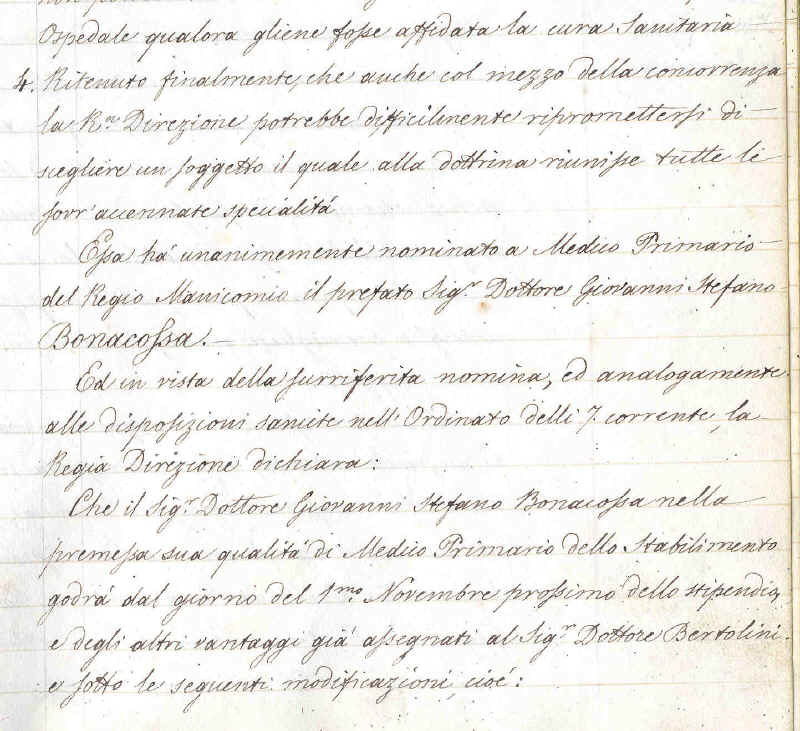 Ospedale qualora gliene fosse affidata la cura Sanitaria
4. Ritenuto finalmente, che anche col mezzo della concorrenza
la R.a Direzione potrebbe difficilmente ripromettersi di
scegliere un soggetto il quale alla dottrina riunisse tutte le
sovr'accennate specialità
Essa há unanimemente nominato a Medico Primario
del Regio Manicomio il prefato Sig.r Dottore Giovanni Stefano
Bonacossa.—
Ed in vista della surriferita nomina, ed analogamente
alle disposizioni sancite nell'Ordinato delli 7. corrente, la
Regia Direzione dichiara:
Che il Sig.r Dottore Giovanni Stefano Bonacossa nella
premessa sua qualità di Medico Primario dello Stabilimento
godrà dal giorno del 1.mo Novembre prossimo dello stipendio,
e degli altri vantaggi già assegnati al Sig.r Dottore Bertolini
e sotto le seguenti modificazioni, cioé: